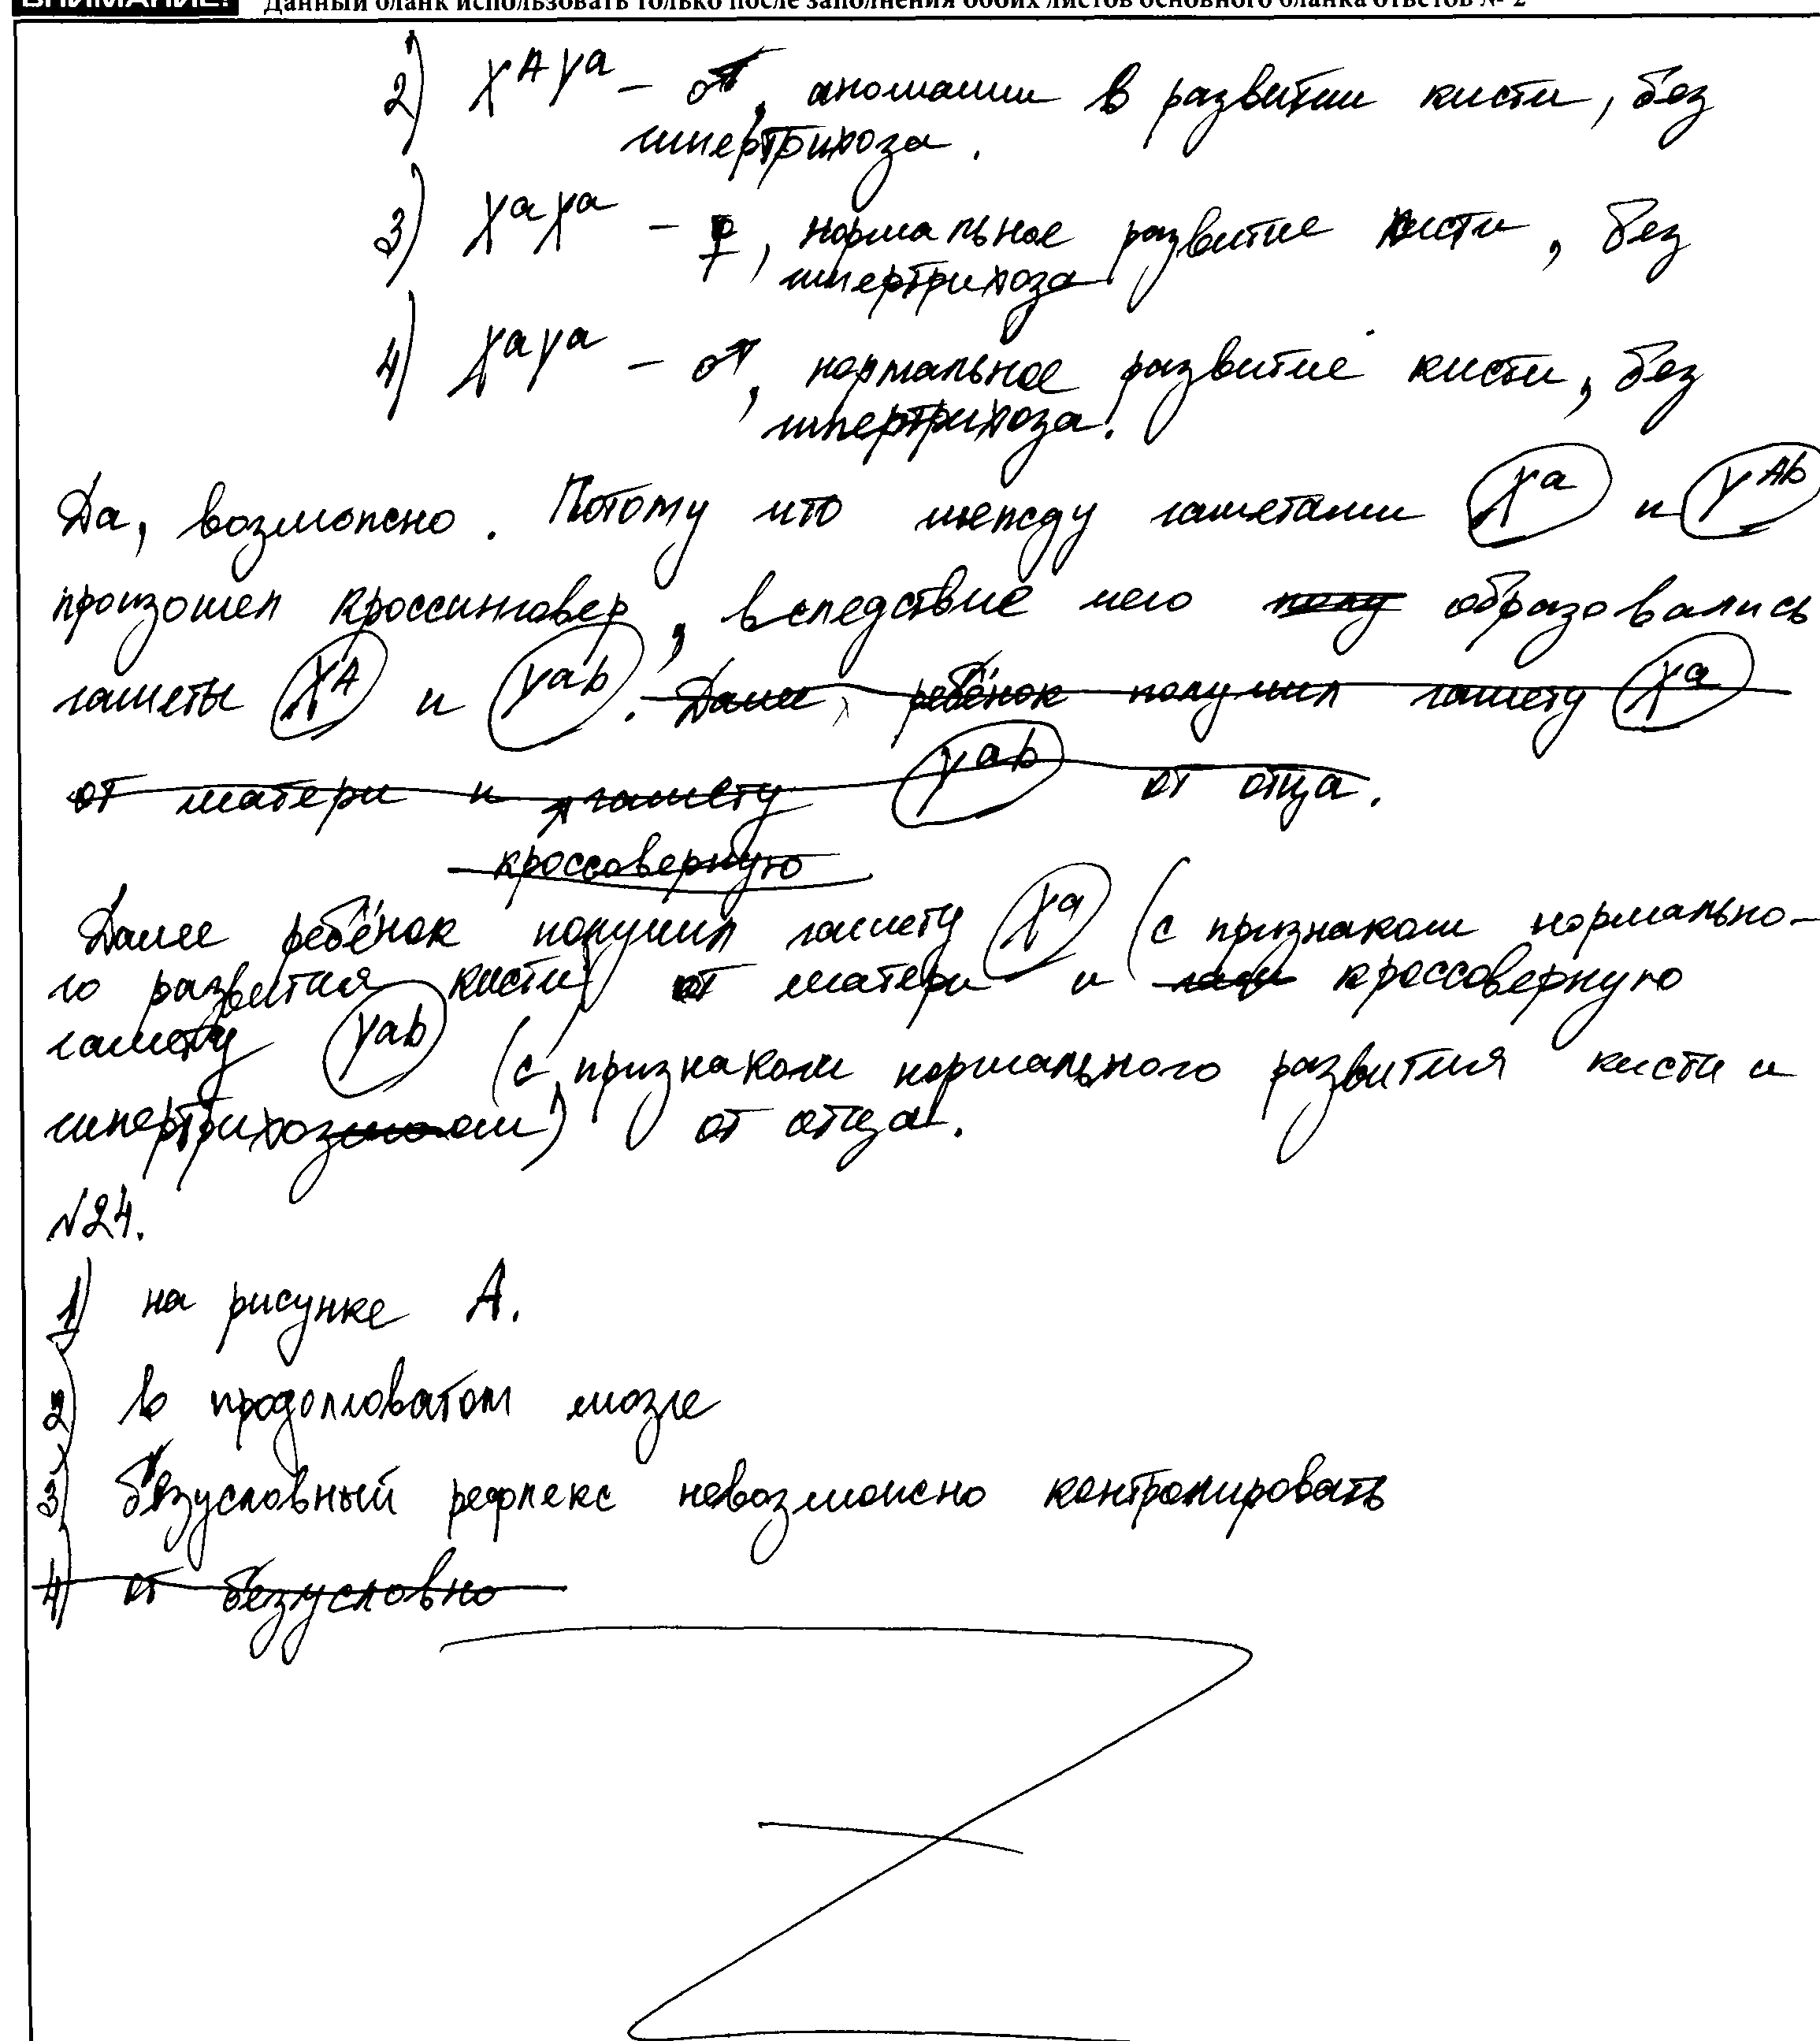 ВНИМАНИЕ! Данный бланк использовать только после заполнения обоих листов основного бланка ответов № 2
2) X^A Y^a – ♂, аномалии в развитии кисти, без
гипертрихоза.
3) X^a X^a – ♀, нормальное развитие кисти, без
гипертрихоза
4) X^a Y^a – ♂, нормальное развитие кисти, без
гипертрихоза.
Да, возможно. Потому что между гаметами X^a и Y^Ab
произошел кроссинговер, вследствие чего образовались
гаметы X^A и Y^ab. Далее, ребёнок получил гамету X^a
от матери и гамету Y^ab от отца.
кроссоверную
Далее ребёнок получил гамету X^a (с признаком нормально-
го развития кисти) от матери и кроссоверную
гамету Y^ab (с признаком нормального развития кисти и
гипертрихозом) от отца.
№24.
1) на рисунке А.
2) в продолговатом мозге
3) безусловный рефлекс невозможно контролировать
4) от безусловно